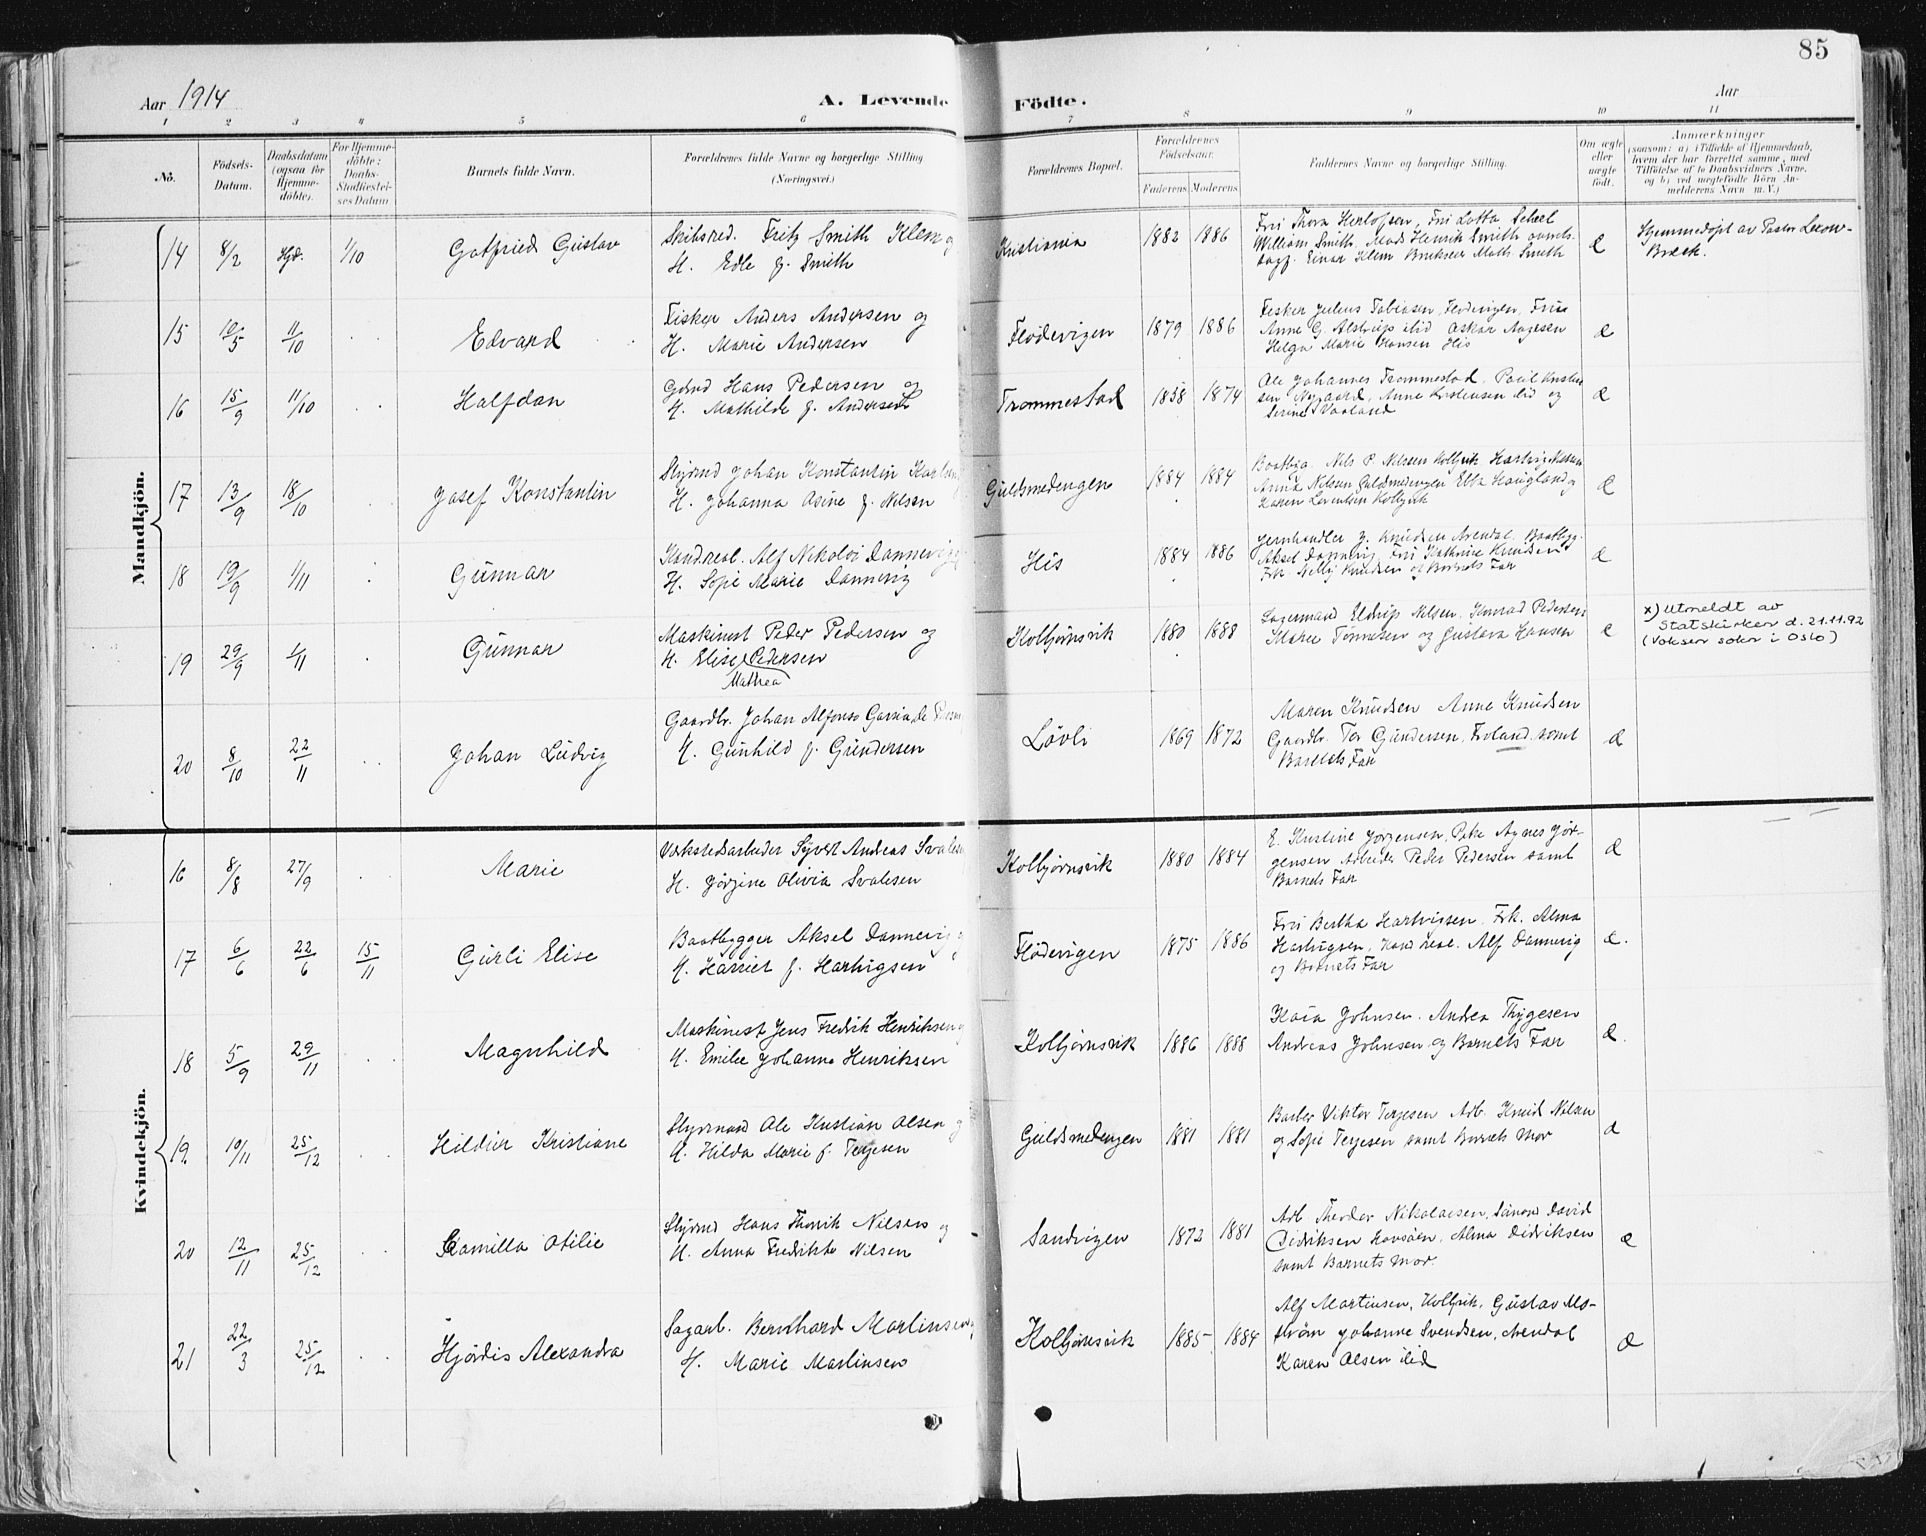 85
Aar 1914
A. Levende Födte.
Aar
1 2 3 4 5 6 7 8 9 10 11
Nö.
Födsels-Datum.
Daabsdatum (ogsaa for Hjemme-döbte).
For Hjemme-döbte: Daabs-Stadfæstel-ses Datum
Barnets fulde Navn.
Forældrenes fulde Navne og borgerlige Stilling (Næringsvei.)
Forældrenes Bopæl.
Forældrenes Födselsaar.
Faderens Moderens
Faddernes Navne og borgerlige Stilling.
Om ægte eller uægte födt.
Anmærkninger
(saasom: a) i Tilfælde af Hjemmedaab,
hvem der har forrettet samme, med
Tilföielse af to Daabsvidners Navne,
og b) ved uægtefödte Börn An-
melderens Navn m. V.)
Mandkjön.
14 8/2 Hjd. 1/10 Gotfried Gustav
Skibsred. Fritz Smith Klem og
H. Edle f. Smith
Kristiania 1882 1886
Fru Thora Herlofsen, Fru Lotta Scheel
William Smith, Mads Henrik Smith
Einar Klem Smith
Æ
Hjemmedøpt av Pastor
15 10/5 11/10 Edvard
Fisker Anders Andersen og
H. Marie Andersen
Flødevigen 1879 1886
Fisker Julius Tobiasen, Flødevigen, Frue
Anne G. Alstrup ibid Oskar Aagesen
Helga Marie Hansen His
Æ
16 15/9 11/10 Halfdan
Gdbrd Hans Pedersen og
H. Mathilde f. Andersen
Trommestad 1858 1874
Ole Johannes Trommestad, Poul Kristen
sen Nygaard, Anne Kristensen ibid og
Serine Vaaland
Æ
17 13/9 18/10 Josef Konstantin
Styrmd Johan Konstantin Karlsen
H. Johanna Asine f. Nilsen
Guldsmedengen 1884 1884
Baatbyg. Nils P. Nilsen Kolbjvik Hartvig Nilsen
Anna Nilsen Guldsmedengen Elba Haugland og
Karen Lorentsen Kolbjvik
Æ
18 19/9 1/11 Gunnar
Kand.real. Alf Nikolai Dannevig
H. Sofie Marie Dannevig
His 1884 1886
Jernhandler J. Knudsen Arendal. Baatbyg.
Aksel Dannevig, Fru Kathrine Knudsen
Frk. Nelly Knudsen og Barnets Far
Æ
19 29/9 1/11 Gunnar
Maskinist Peder Pedersen og
H. Elise Pedersen
Mathea
Kolbjørnsvik 1880 1888
Lagermand Eldrup Nilsen. Konrad Pedersen
Marie Tønnesen og Gustava Hansen
Æ
x) Utmeldt av
Statskirken d. 21.11.92
(Voksen sokn i Oslo)
20 8/10 22/11 Johan Ludvig
Gaardbr. Johan Alfonso Garsia de
H. Gunhild f. Gundersen
Løvli 1869 1872
Maren Knudsen Anne Knudsen
Gaardbr. Tor Gundersen, Froland samt
Barnets Far
Æ
Kvindekjön.
16 8/8 27/9 Marie
Verkstedsarbeider Syvert Andreas Svalesen
H. Jørgine Olivia Svalesen
Kolbjørnsvik 1880 1884
E. Kristine Jørgensen, Pike Agnes Jør-
gensen Arbeider Peder Pedersen samt
Barnets Far
Æ
17 6/6 22/6 15/11 Gurli Elise
Baatbygger Aksel Dannevig og
H. Harriet f. Hartvigsen
Flødevigen 1875 1886
Fru Bertha Hartvigsen, Frk. Alma
Hartvigsen, Kand real. Alf Dannevig
og Barnets Far
Æ.
18 5/9 29/11 Magnhild
Maskinist Jens Fredrik Henriksen og
H. Emilie Johanne Henriksen
Kolbjørnsvik 1886 1888
Kaia Johnsen. Andrea Thygesen
Andreas Johnsen og Barnets Far
Æ.
19. 10/11 25/12 Hildur Kristiane
Styrmand Ole Kristian Olsen og
H. Hilda Marie f. Terjesen
Guldsmedengen 1881 1881
Barber Viktor Terjesen Arb. Knud Nilsen
og Sofie Terjesen samt Barnets Mor
Æ
20 12/11 25/12 Camilla Otilie
Styrmd Hans Thorvik Nilsen og
H. Anna Fredrikke Nilsen
Sandvigen 1872 1881
Arb. Theodor Nikolaisen, Sømand David
Didriksen Havsøen, Alma Didriksen
samt Barnets Mor.
Æ
21 22/3 25/12 Hjørdis Alexandra
Sagarb. Bernhard Martinsen og
H. Marie Martinsen
Kolbjørnsvik 1885 1884
Alf Martinsen, Kolbjvik, Gustav Mo-
strøm Johanne Svendsen, Arendal
Karen Olsen ibid
Æ